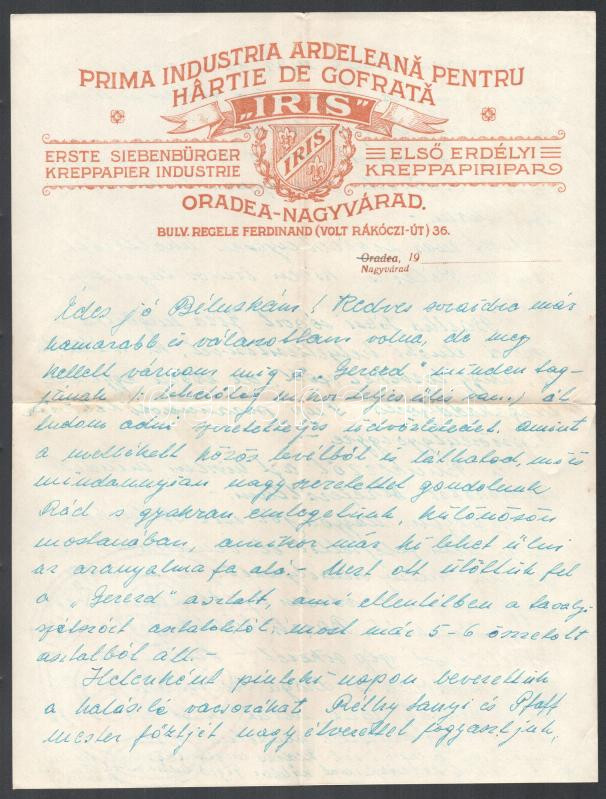 PRIMA INDUSTRIA ARDELEANĂ PENTRU
HÂRTIE DE GOFRATĂ
„IRIS”
IRIS
ERSTE SIEBENBÜRGER
KREPPAPIER INDUSTRIE
ELSŐ ERDÉLYI
KREPPAPIRIPAR
ORADEA-NAGYVÁRAD.
BULV. REGELE FERDINAND (VOLT RÁKÓCZI-ÚT) 36.
Oradea, 19
Nagyvárad
Édes jó Béluskám! Kedves soraidra már
hamarabb is válaszoltam volna, de meg
kellett várnom míg a „Gerezd” minden tag-
jának (: lehetőleg mikor teljes ülés van :) át
tudom adni szeretetteljes üdvözletedet. Amint
a mellékelt közös levélből is láthatod, mi is
mindannyian nagy szeretettel gondolunk
Rád s gyakran emlegetünk, különösön
mostanában, amikor már ki lehet ülni
az aranyalmafa alá. - Mert ott ütöttük fel
a „Gerezd” asztalt, ami ellentétben a tavalyi
szétszórt asztaloktól, most már 5-6 össztolt
asztalból áll. -
Hetenként pénteki napon bevezettük
a halászlé vacsorákat. Réthy Sanyi és Pfaff
mester főztjét nagy élvezettel fogyasztjuk,